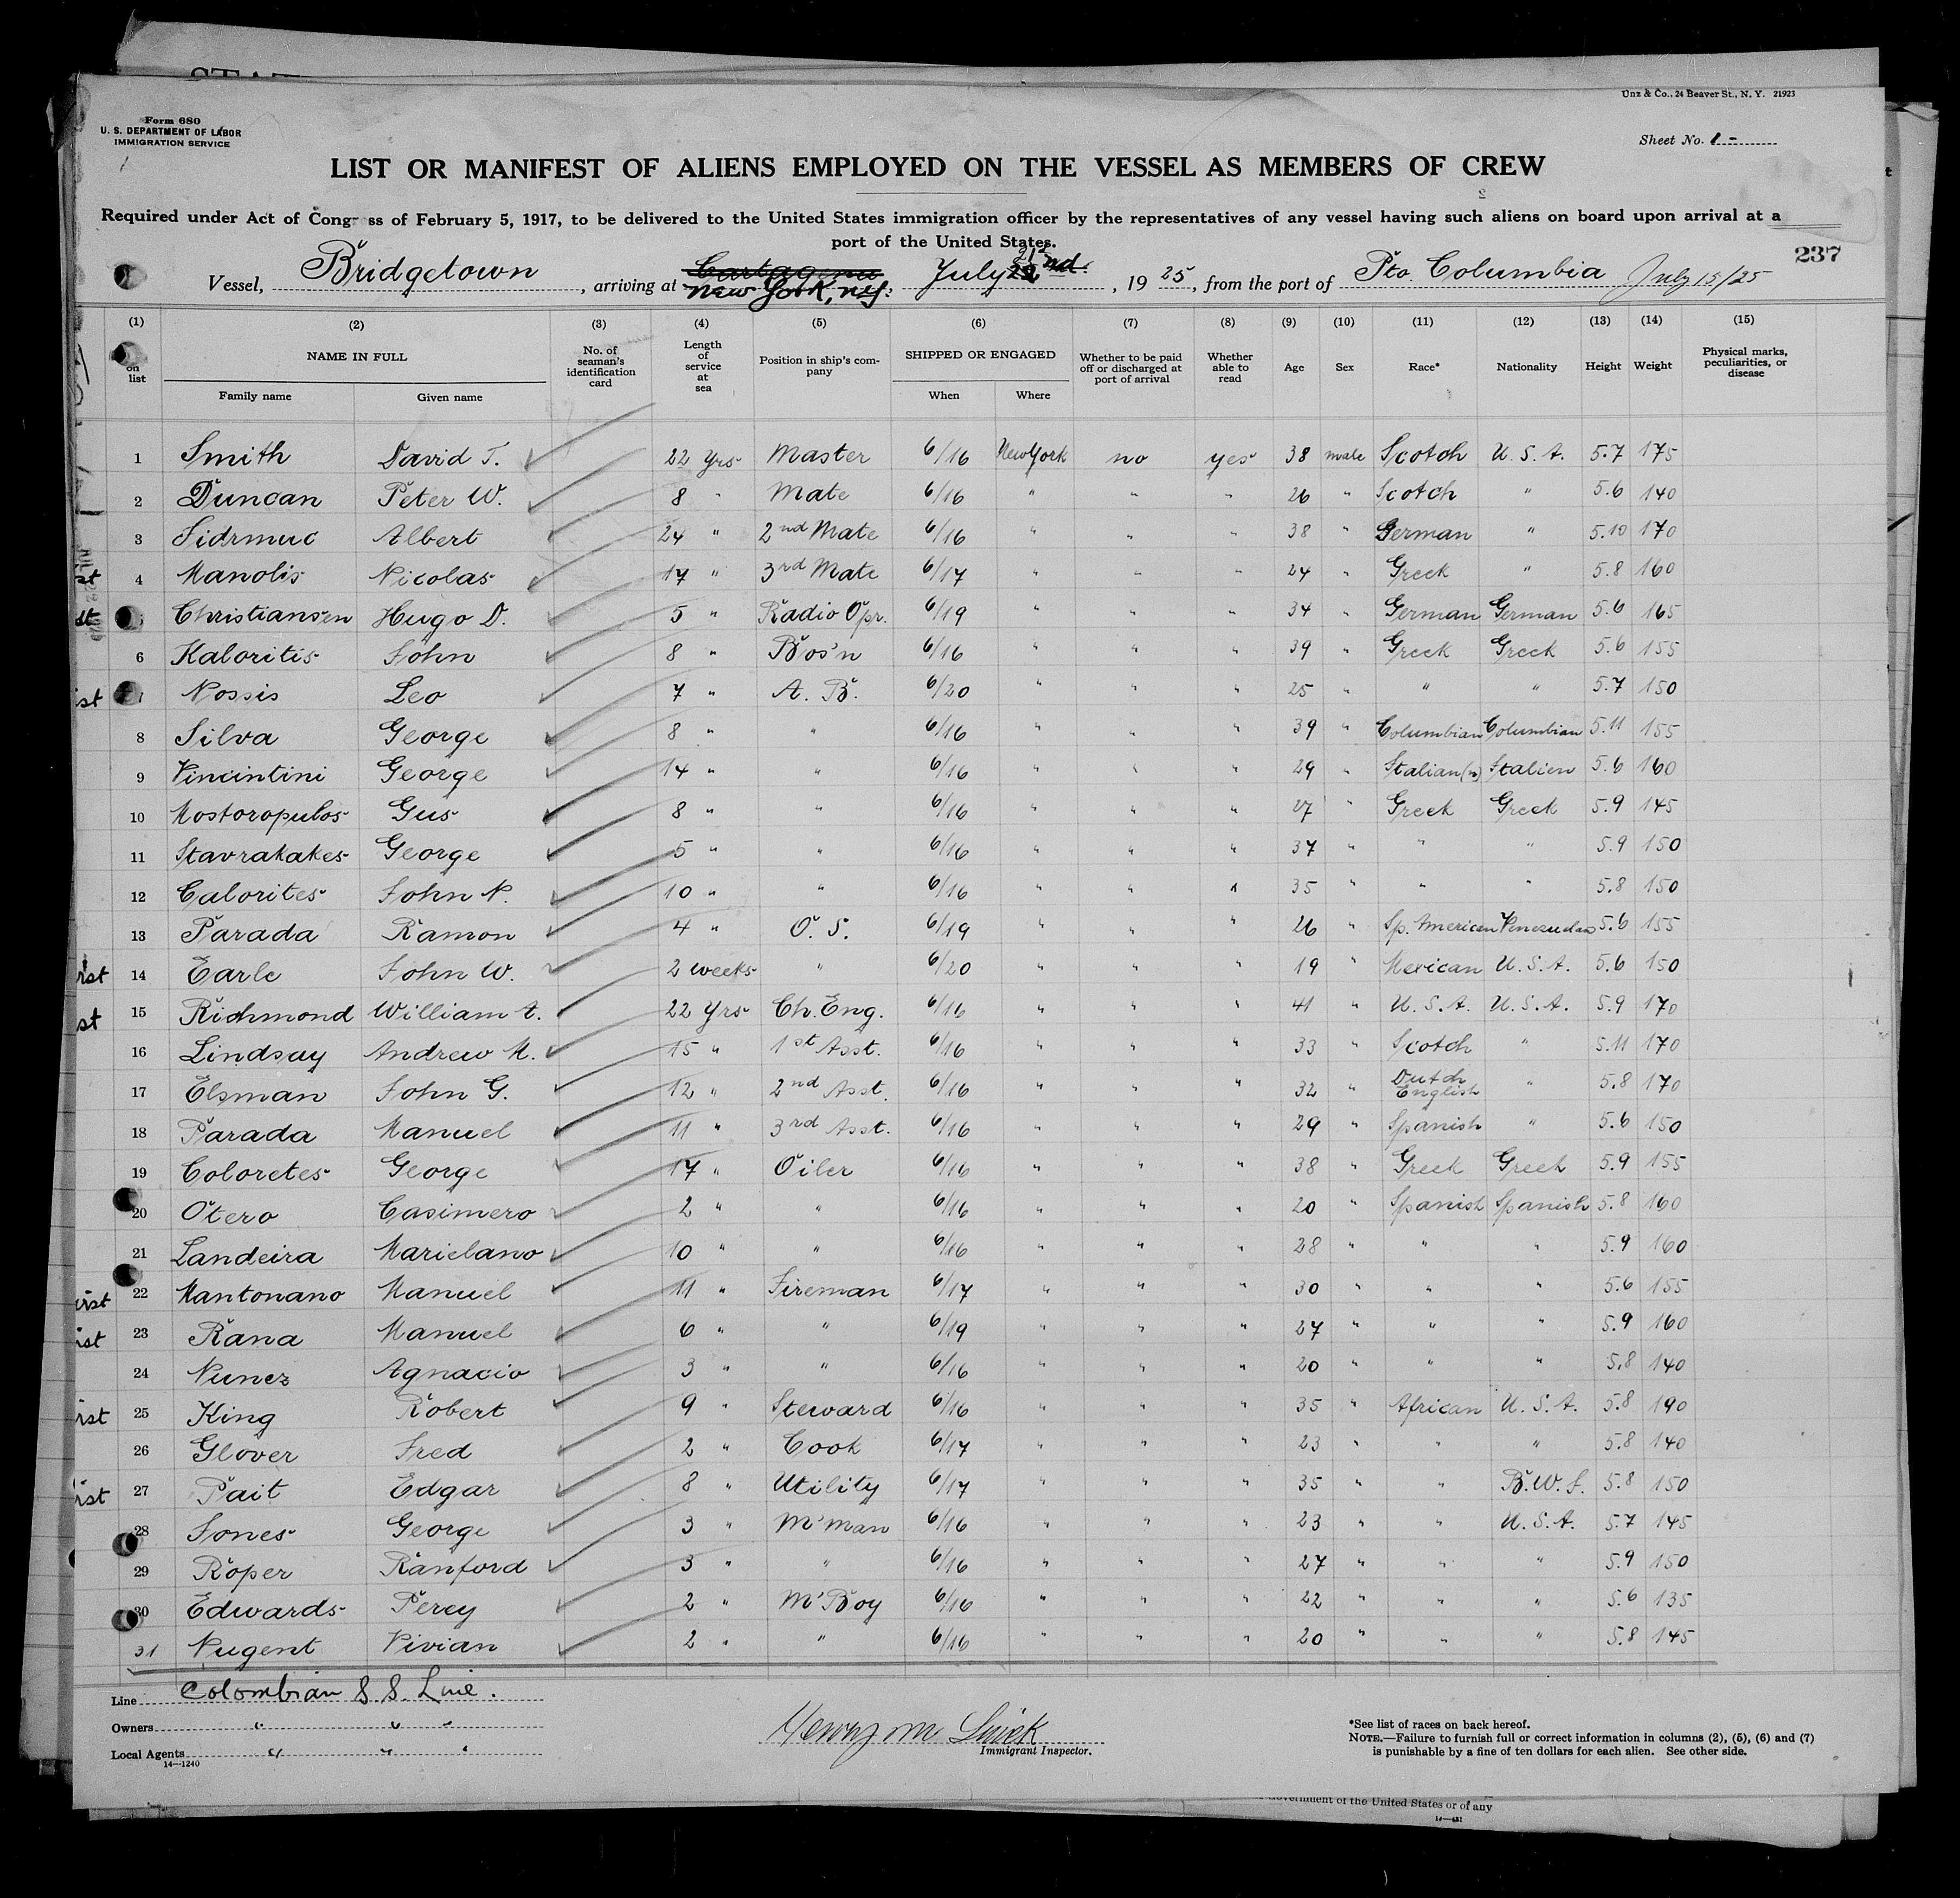 STAT
Unz & Co., 24 Beaver St., N. Y. 21923
Form 680
U. S. DEPARTMENT OF LABOR
IMMIGRATION SERVICE
Sheet No. 1 -
LIST OR MANIFEST OF ALIENS EMPLOYED ON THE VESSEL AS MEMBERS OF CREW
Required under Act of Congress of February 5, 1917, to be delivered to the United States immigration officer by the representatives of any vessel having such aliens on board upon arrival at a
port of the United States.
237
Vessel, Bridgetown, arriving at Cartagena New York, N.Y., July 22nd, 1925, from the port of Pto. Columbia July 15/25
(1) (2) (3) (4) (5) (6) (7) (8) (9) (10) (11) (12) (13) (14) (15)
on list NAME IN FULL Family name Given name No. of seaman's identification card Length of service at sea Position in ship's company SHIPPED OR ENGAGED When Where Whether to be paid off or discharged at port of arrival Whether able to read Age Sex Race* Nationality Height Weight Physical marks, peculiarities, or disease
1 Smith David T. 22 Yrs Master 6/16 New York no yes 38 male Scotch U. S. A. 5.7 175
2 Duncan Peter W. 8 " Mate 6/16 " " " 26 " Scotch " 5.6 140
3 Sidrmuc Albert 24 " 2nd Mate 6/16 " " " 38 " German " 5.10 170
st 4 Manolis Nicolas 17 " 3rd Mate 6/17 " " " 24 " Greek " 5.8 160
st Christiansen Hugo D. 5 " Radio Opr. 6/19 " " " 34 " German German 5.6 165
6 Kaloritis John 8 " Bos'n 6/16 " " " 39 " Greek Greek 5.6 155
st Nossis Leo 7 " A. B. 6/20 " " " 25 " " " 5.7 150
8 Silva George 8 " " 6/16 " " " 39 " Columbian Columbian 5.11 155
9 Vincintini George 14 " " 6/16 " " " 29 " Italian(n) Italien 5.6 160
10 Mostoropulos Gus 8 " " 6/16 " " " 27 " Greek Greek 5.9 145
11 Stavrakakes George 5 " " 6/16 " " " 37 " " " 5.9 150
12 Calorites John N. 10 " " 6/16 " " " 35 " " " 5.8 150
13 Parada Ramon 4 " O. S. 6/19 " " " 26 " Sp. American Venezuelan 5.6 155
rst 14 Earle John W. 2 weeks " 6/20 " " " 19 " Mexican U. S. A. 5.6 150
st 15 Richmond William A. 22 Yrs Ch. Eng. 6/16 " " " 41 " U. S. A. U. S. A. 5.9 170
16 Lindsay Andrew M. 15 " 1st Asst. 6/16 " " " 33 " Scotch " 5.11 170
17 Elsman John G. 12 " 2nd Asst. 6/16 " " " 32 " Dutch English " 5.8 170
18 Parada Manuel 11 " 3rd Asst. 6/16 " " " 29 " Spanish " 5.6 150
19 Coloretes George 17 " Oiler 6/16 " " " 38 " Greek Greek 5.9 155
20 Otero Casimero 2 " " 6/16 " " " 20 " Spanish Spanish 5.8 160
21 Landeira Marielano 10 " " 6/16 " " " 28 " " " 5.9 160
irst 22 Mantonano Manuel 11 " Fireman 6/17 " " " 30 " " " 5.6 155
ist 23 Rana Manuel 6 " " 6/19 " " " 27 " " " 5.9 160
24 Nunez Agnacio 3 " " 6/16 " " " 20 " " " 5.8 140
rst 25 King Robert 9 " Steward 6/16 " " " 35 " African U. S. A. 5.8 190
26 Glover Fred 2 " Cook 6/17 " " " 23 " " " 5.8 140
rst 27 Pait Edgar 8 " Utility 6/17 " " " 35 " " B. W. I. 5.8 150
28 Jones George 3 " M'man 6/16 " " " 23 " " U. S. A. 5.7 145
29 Roper Ranford 3 " " 6/16 " " " 27 " " " 5.9 150
30 Edwards Percy 2 " M'Boy 6/16 " " " 22 " " " 5.6 135
31 Nugent Vivian 2 " " 6/16 " " " 20 " " " 5.8 145
Line Colombian S. S. Line.
Owners " " "
Local Agents " " "
14—1240
Immigrant Inspector.
*See list of races on back hereof.
NOTE.—Failure to furnish full or correct information in columns (2), (5), (6) and (7)
is punishable by a fine of ten dollars for each alien. See other side.
Government of the United States or of any